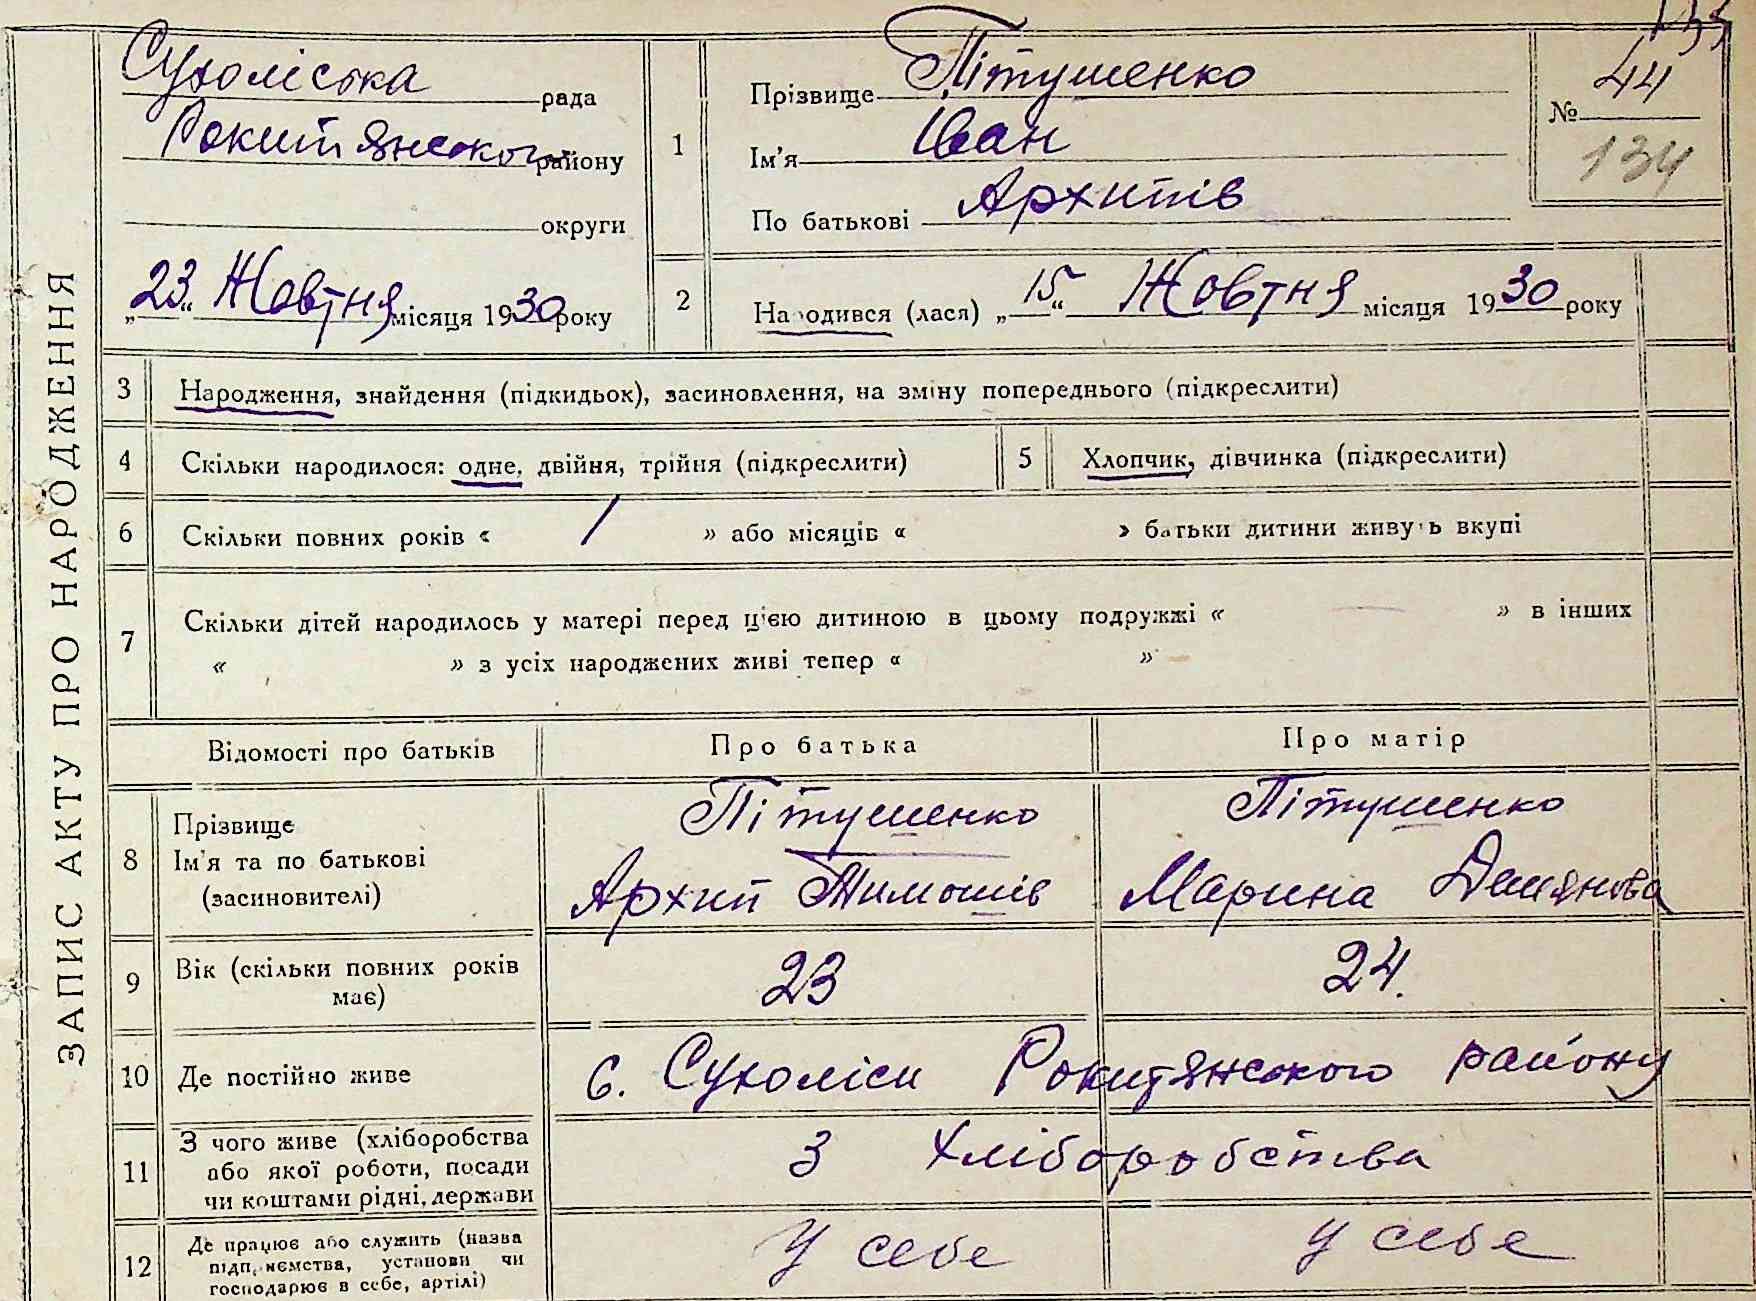 ЗАПИС АКТУ ПРО НАРОДЖЕННЯ
Сухоліська рада
Рокитянського району
округи
„23“ Жовтня місяця 1930 року
1
Прізвище Пітушенко
Ім'я Іван
По батькові Архипів
№ 44
134
2
Народився (лася) „15“ Жовтня місяця 1930 року
3 Народження, знайдення (підкидьок), засиновлення, на зміну попереднього (підкреслити)
4 Скільки народилося: одне, двійня, трійня (підкреслити) 5 Хлопчик, дівчинка (підкреслити)
6 Скільки повних років « / » або місяців « » батьки дитини живуть вкупі
7 Скільки дітей народилось у матері перед цією дитиною в цьому подружжі « — » в інших
« » з усіх народжених живі тепер « »
Відомості про батьків Про батька Про матір
8 Прізвище Пітушенко Пітушенко
Ім'я та по батькові Архип Тимошів Марина Демянова
(засиновителі)
9 Вік (скільки повних років має) 23 24.
10 Де постійно живе с. Сухоліси Рокитянського району
11 З чого живе (хліборобства
або якої роботи, посади
чи коштами рідні, держави
З хліборобства
12 Де працює або служить (назва
підприємства, установи чи
господарює в себе, артілі)
У себе У себе